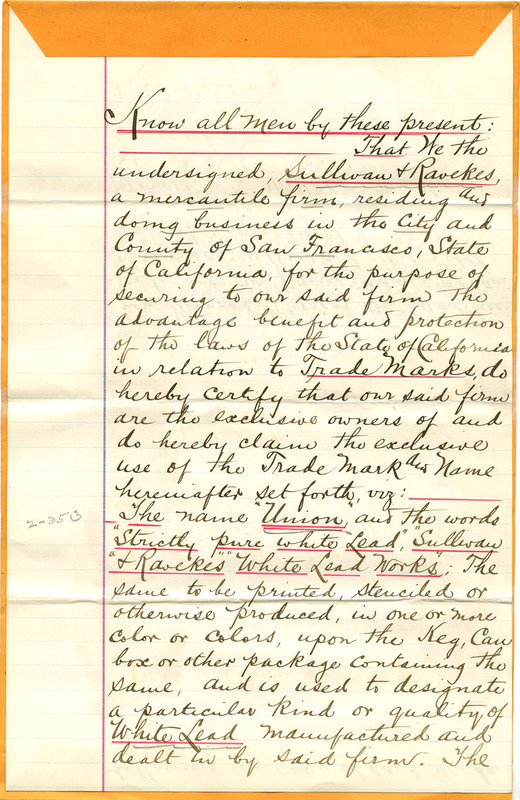 Know all men by these present:
That We the
undersigned, Sullivan & Ravekes,
a mercantile firm, residing and
doing business in the City and
County of San Francisco, State
of California, for the purpose of
securing to our said firm the
advantage benefit and protection
of the laws of the State of California
in relation to Trade Marks, do
hereby certify that our said firm
are the exclusive owners of and
do hereby claim the exclusive
use of the Trade Mark and Name
hereinafter set forth, viz:
The name "Union", and the words
"Strictly pure white Lead", "Sullivan
"& Ravekes" "White Lead Works"; The
same to be printed, stenciled or
otherwise produced, in one or more
color or colors, upon the Keg, Can
box or other package containing the
same, and is used to designate
a particular kind or quality of
White Lead manufactured and
dealt in by said firm. The
2-353